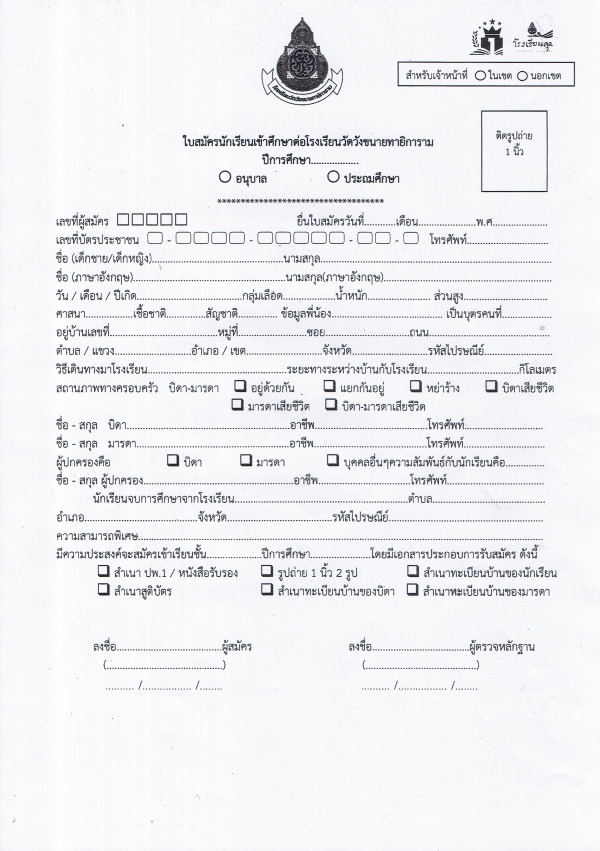 โรงเรียนคุณ
สำหรับเจ้าหน้าที่ ในเขต นอกเขต
ติดรูปถ่าย
1 นิ้ว
ใบสมัครนักเรียนเข้าศึกษาต่อโรงเรียนวัดวังขนายทายิการาม
ปีการศึกษา.................
อนุบาล ประถมศึกษา
************************************
เลขที่ผู้สมัคร ยื่นใบสมัครวันที่...........เดือน....................พ.ศ...................
เลขที่บัตรประชาชน - - - - โทรศัพท์............................
ชื่อ (เด็กชาย/เด็กหญิง)..............................................นามสกุล................................................................................
ชื่อ (ภาษาอังกฤษ).....................................................นามสกุล(ภาษาอังกฤษ).........................................................
วัน / เดือน / ปีเกิด.....................................กลุ่มเลือด...................น้ำหนัก..................... ส่วนสูง..............................
ศาสนา................เชื้อชาติ...............สัญชาติ.............. ข้อมูลพี่น้อง....................................... เป็นบุตรคนที่.................
อยู่บ้านเลขที่.....................................หมู่ที่........................ซอย............................ถนน.........................................
ตำบล / แขวง...........................อำเภอ / เขต...........................จังหวัด...........................รหัสไปรษณีย์........................
วิธีเดินทางมาโรงเรียน................................................ระยะทางระหว่างบ้านกับโรงเรียน................................กิโลเมตร
สถานภาพทางครอบครัว บิดา-มารดา อยู่ด้วยกัน แยกกันอยู่ หย่าร้าง บิดาเสียชีวิต
มารดาเสียชีวิต บิดา-มารดาเสียชีวิต
ชื่อ - สกุล บิดา.........................................................อาชีพ.......................................โทรศัพท์...........................
ชื่อ - สกุล มารดา......................................................อาชีพ.......................................โทรศัพท์...........................
ผู้ปกครองคือ บิดา มารดา บุคคลอื่นๆความสัมพันธ์กับนักเรียนคือ..............
ชื่อ - สกุล ผู้ปกครอง....................................................อาชีพ.......................................โทรศัพท์..................................
นักเรียนจบการศึกษาจากโรงเรียน............................................................ตำบล.......................................
อำเภอ......................................จังหวัด....................................รหัสไปรษณีย์......................................................
ความสามารถพิเศษ.............................................................................................................................................
มีความประสงค์จะสมัครเข้าเรียนชั้น...................ปีการศึกษา.....................โดยมีเอกสารประกอบการรับสมัคร ดังนี้
สำเนา ปพ.1 / หนังสือรับรอง รูปถ่าย 1 นิ้ว 2 รูป สำเนาทะเบียนบ้านของนักเรียน
สำเนาสูติบัตร สำเนาทะเบียนบ้านของบิดา สำเนาทะเบียนบ้านของมารดา
ลงชื่อ...................................ผู้สมัคร ลงชื่อ................................ผู้ตรวจหลักฐาน
(.......................................) (.....................................)
.......... /................. /........ .......... /................. /........